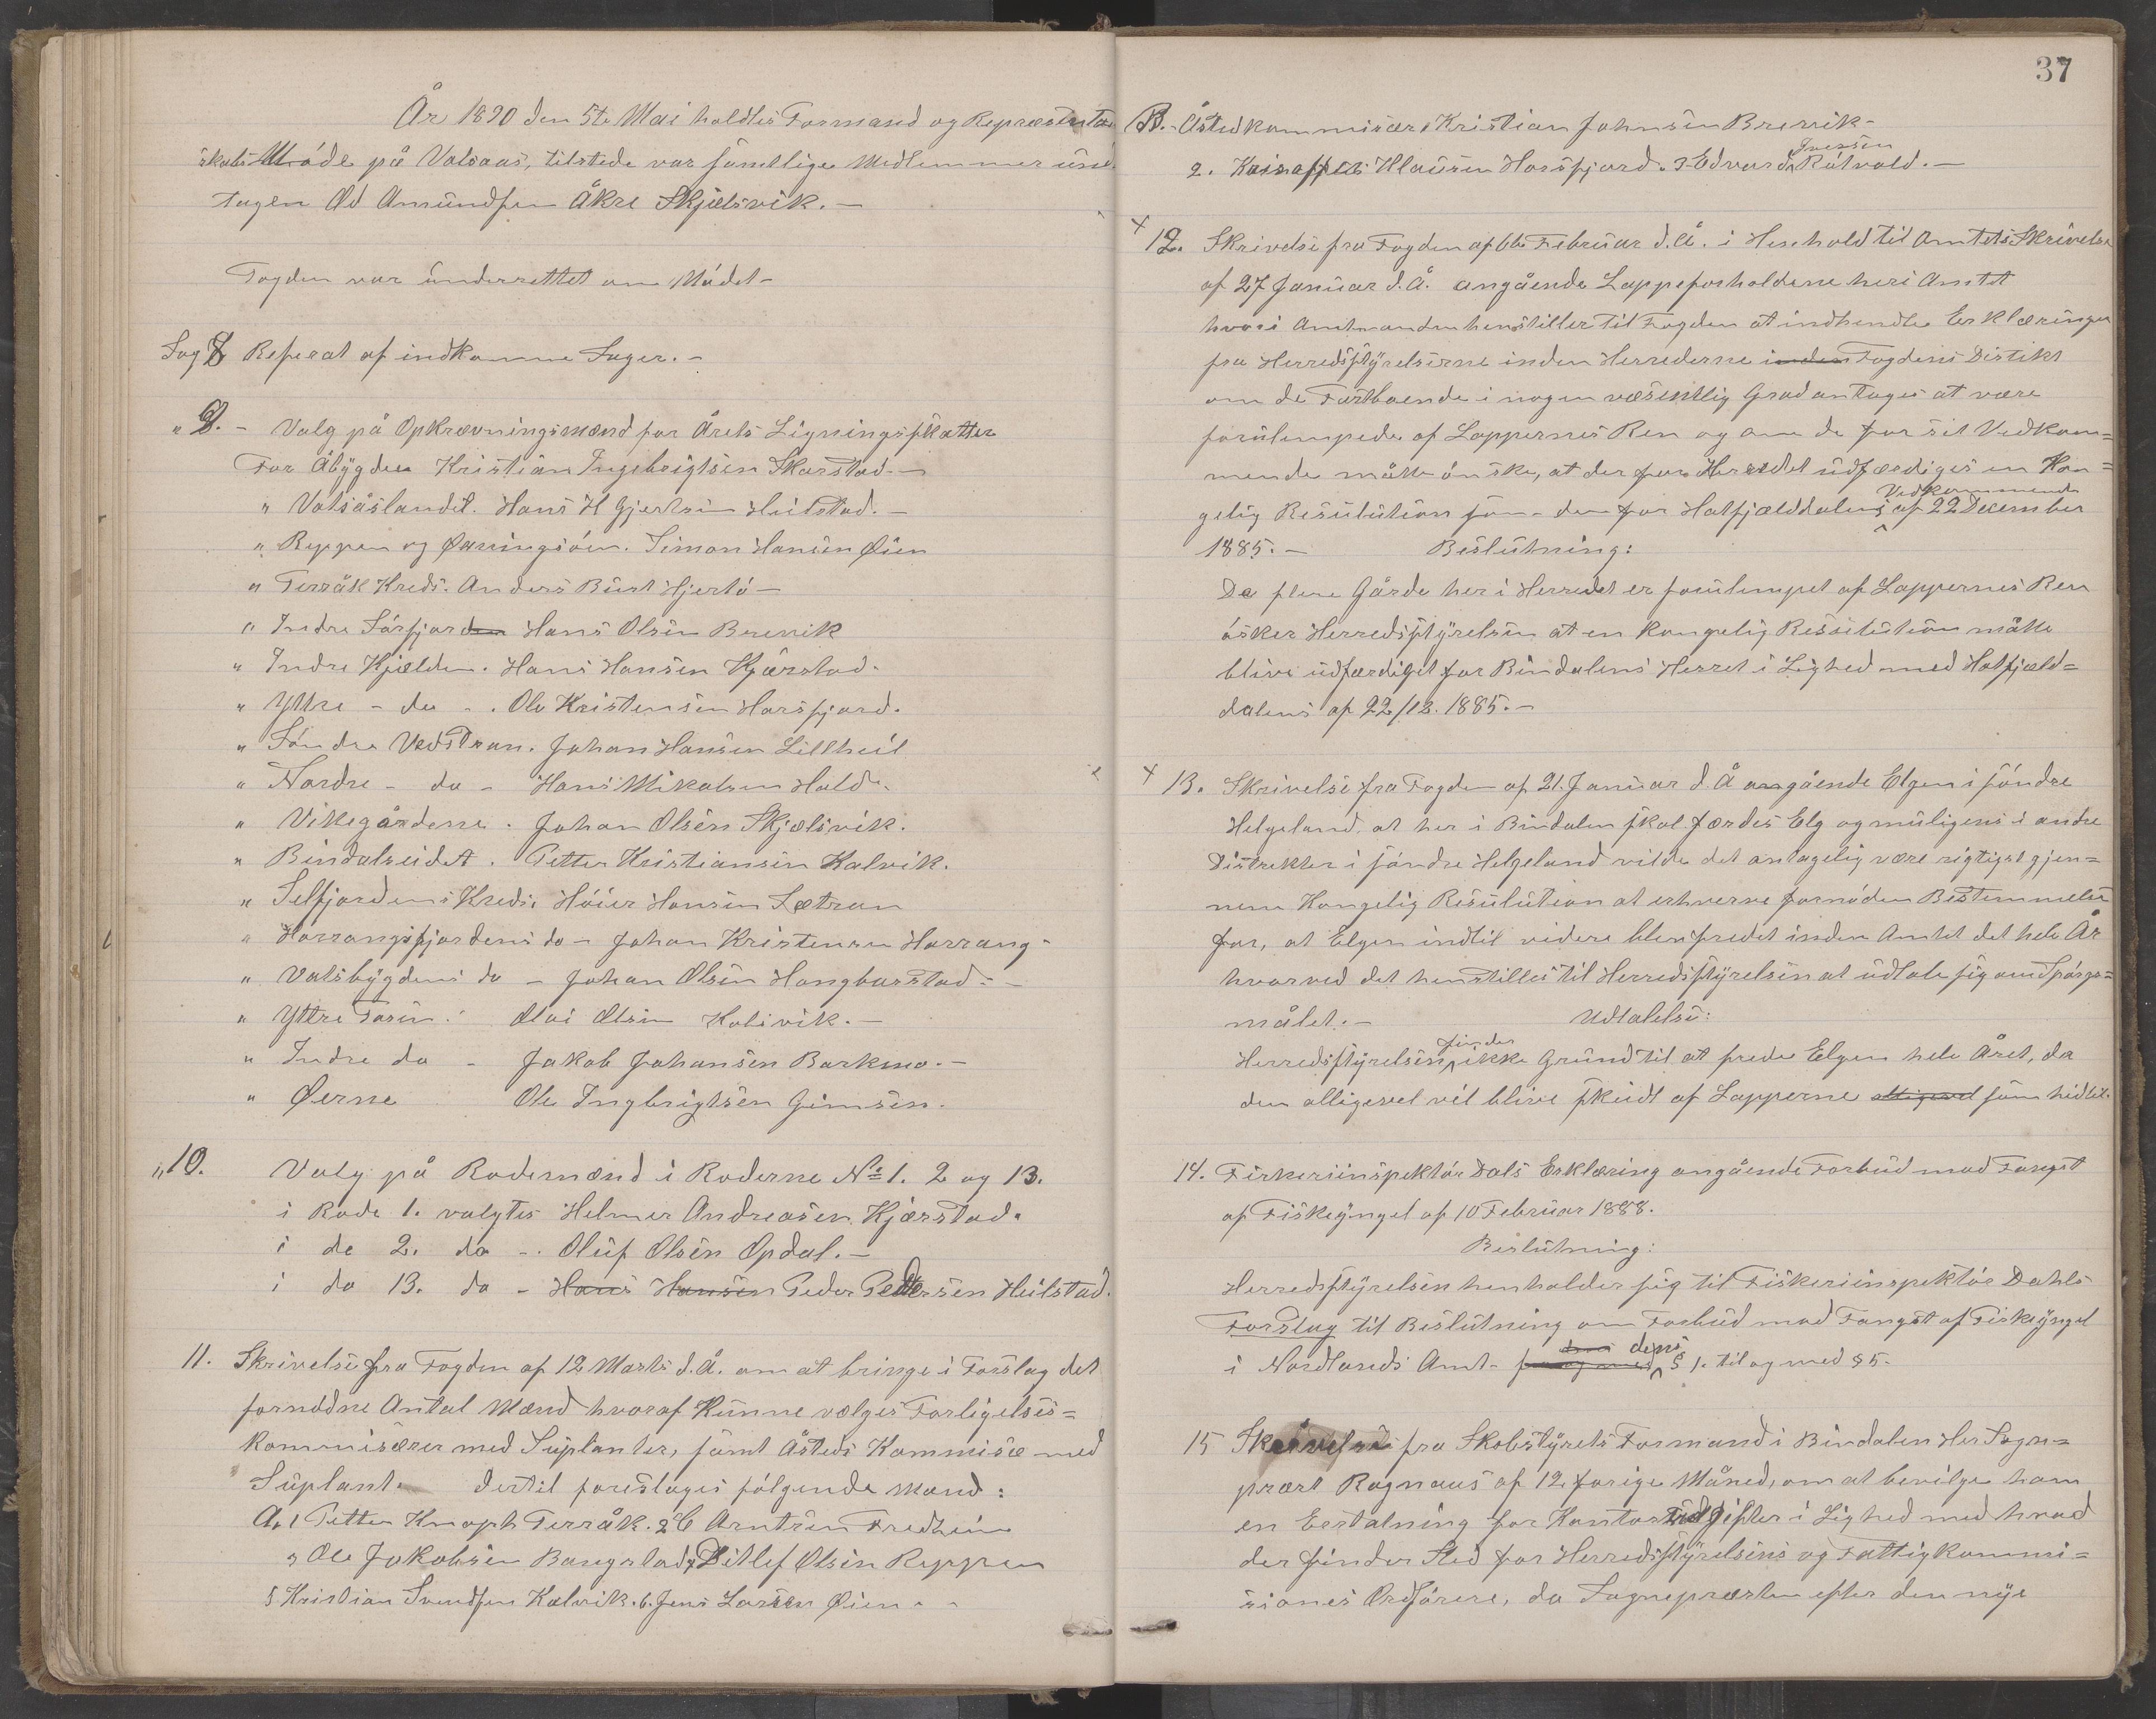 År 1890 den 5te Mai holdtes Formand og Repræsentan
skabs Møde på Vatsaas, tilstede var samtlige Medlemmer und
tagen Od Amundsen Åkre Skjelsvik. -
Fogden var underrettet om Mødet -
Sag 8 Referat af indkomne Sager. -
" 9. - Valg på Opkrævningsmænd for Årets Ligningsskatter
For Åbygden Kristian Ingebrigtsen Skarstad. -
" Vatsåslandet. Hans H Gjertsen Heilstad. -
" Reppen og Simon Hansen Øien
" Terråk Kreds. Anders Hjertø -
" Indre Sørfjorden Hans Olsen Brevik
" Indre Kjælden. Hans Hansen Kjærstad.
" Yttre - do - . Ole Kristensen Horsfjord.
" Søndre Vedstran. Johan Hansen Lillheil
" Nordre - do - Hans Mikalsen Hald.
" Vikegårdene . Johan Olsen Skjelsvik.
" Bindalseidet . Petter Kristiansen Kalvik.
" Selfjordens Kreds. Høier Hansen Sætran
" Harrangsfjordens do - Johan Kristensen Harrang -
" Vatsbygdens do - Johan Olsen Hongbarstad -
" Yttre Tosen. Olai Olsen Kolsvik. -
" Indre do - Jakob Johansen Barkmo. -
" Øerne Ole Ingbrigtsen Gimsen.
" 10. Valg på Rodemænd i Roderne No 1. 2 og 13.
i Rode 1. valgtes Helmer Andreasen Kjærstad.
i do 2. do -. Oluf Olsen Opdal. -
i do 13. do - Hans Hansen Peder Pettersen Heilstad.
11. Skrivelse fra Fogden af 12 Marts d.Å. om at bringe i Forslag det
fornødne Antal Mænd hvoraf Kunne vælges Forligelses=
kommisærer med Suplanter, samt Åsteds Kommisæ med
Suplant. dertil foreslages følgende Mænd:
A, 1 Petter Knoph Terråk. 2 C Arntsen Fredheim
3 Ole Jakobsen Bangstad, 4 Ditlef Olsen Reppen
5 Kristian Svendsen Kalvik. 6. Jens Larsen Øien. -
37
B. - Åstedkommisær 1 Kristian Johnsen Brevik -
Iversen
2. Klausen Horsfjord. 3. Edvard Råtvold. -
x 12. Skrivelse fra Fogden af 6te Februar d.Å. i Henhold til Amtets Skrivelse
af 27 Januar d.Å. angående Lappeforholdene heri Amtet
hvori Amtmanden henstiller til Fogden at indhendte Erklæringer
fra Herredsstyrelserne inden Herrederne inden Fogdens Distikt
om de Fastboende i nogen væsentlig Grad antages at være
forulempede af Lappernes Ren og om de for sit Vedkom=
mende måtte ønske, at der for Herredet udfærdiges en Kon=
Vedkommende
gelig Resulution som den for Hatfjælddalens af 22 December
1885. - Beslutning:
Da flere Gårde her i Herredet er forulempet af Lappernes Ren
øsker Herredsstyrelsen at en Kongelig Ressulution måtte
blive udfærdiget for Bindalens Herret i Lighed med Hatfjæld=
dalens af 22/12. 1885. -
x 13. Skrivelse fra Fogden af 21. Januar d.Å angående Elgen i søndre
Helgeland, at her i Bindalen skal færdes Elg og muligens i andre
Distrekter i søndre Helgeland vilde det antagelig være rigtigst gjen=
nem Kongelig Resulution at erhverve fornøden Bestemmelse
for, at Elgen indtil videre blev fredet inden Amtet det hele År
hvorved det henstilles til Herredsstyrelsen at udtale sig om Spørgs=
målet. - Udtalelse:
finder
Herredsstyrelsen ikke Grund til at frede Elgen hele Året, da
den alligevel vil blive skudt af Lapperne alligevel som hidtil.
14. Firkeriinspektør Dals Erklæring angående Forbud mod Fangst
af Fiskeyngel af 10 Februar 1888.
Beslutning:
Herredsstyrelsen henholder sig til Fiskeriinspektør Dahls
Forslag til Beslutning om Forbud mod Fangst af Fiskeyngel
dens
i Nordlands Amt - § 1. til og med § 5.
15 Skrivelse fra Skolestyrets Formand i Bindalen Her Sogn=
præst Rognaus af 12 forige Måned, om at bevilge ham
en Erstatning for Kontorudgifter i Lighed med hvad
der finder Sted for Herredsstyrelsens og Fattigkommi=
sionens Ordførere, da Sognepræsten efter den nye